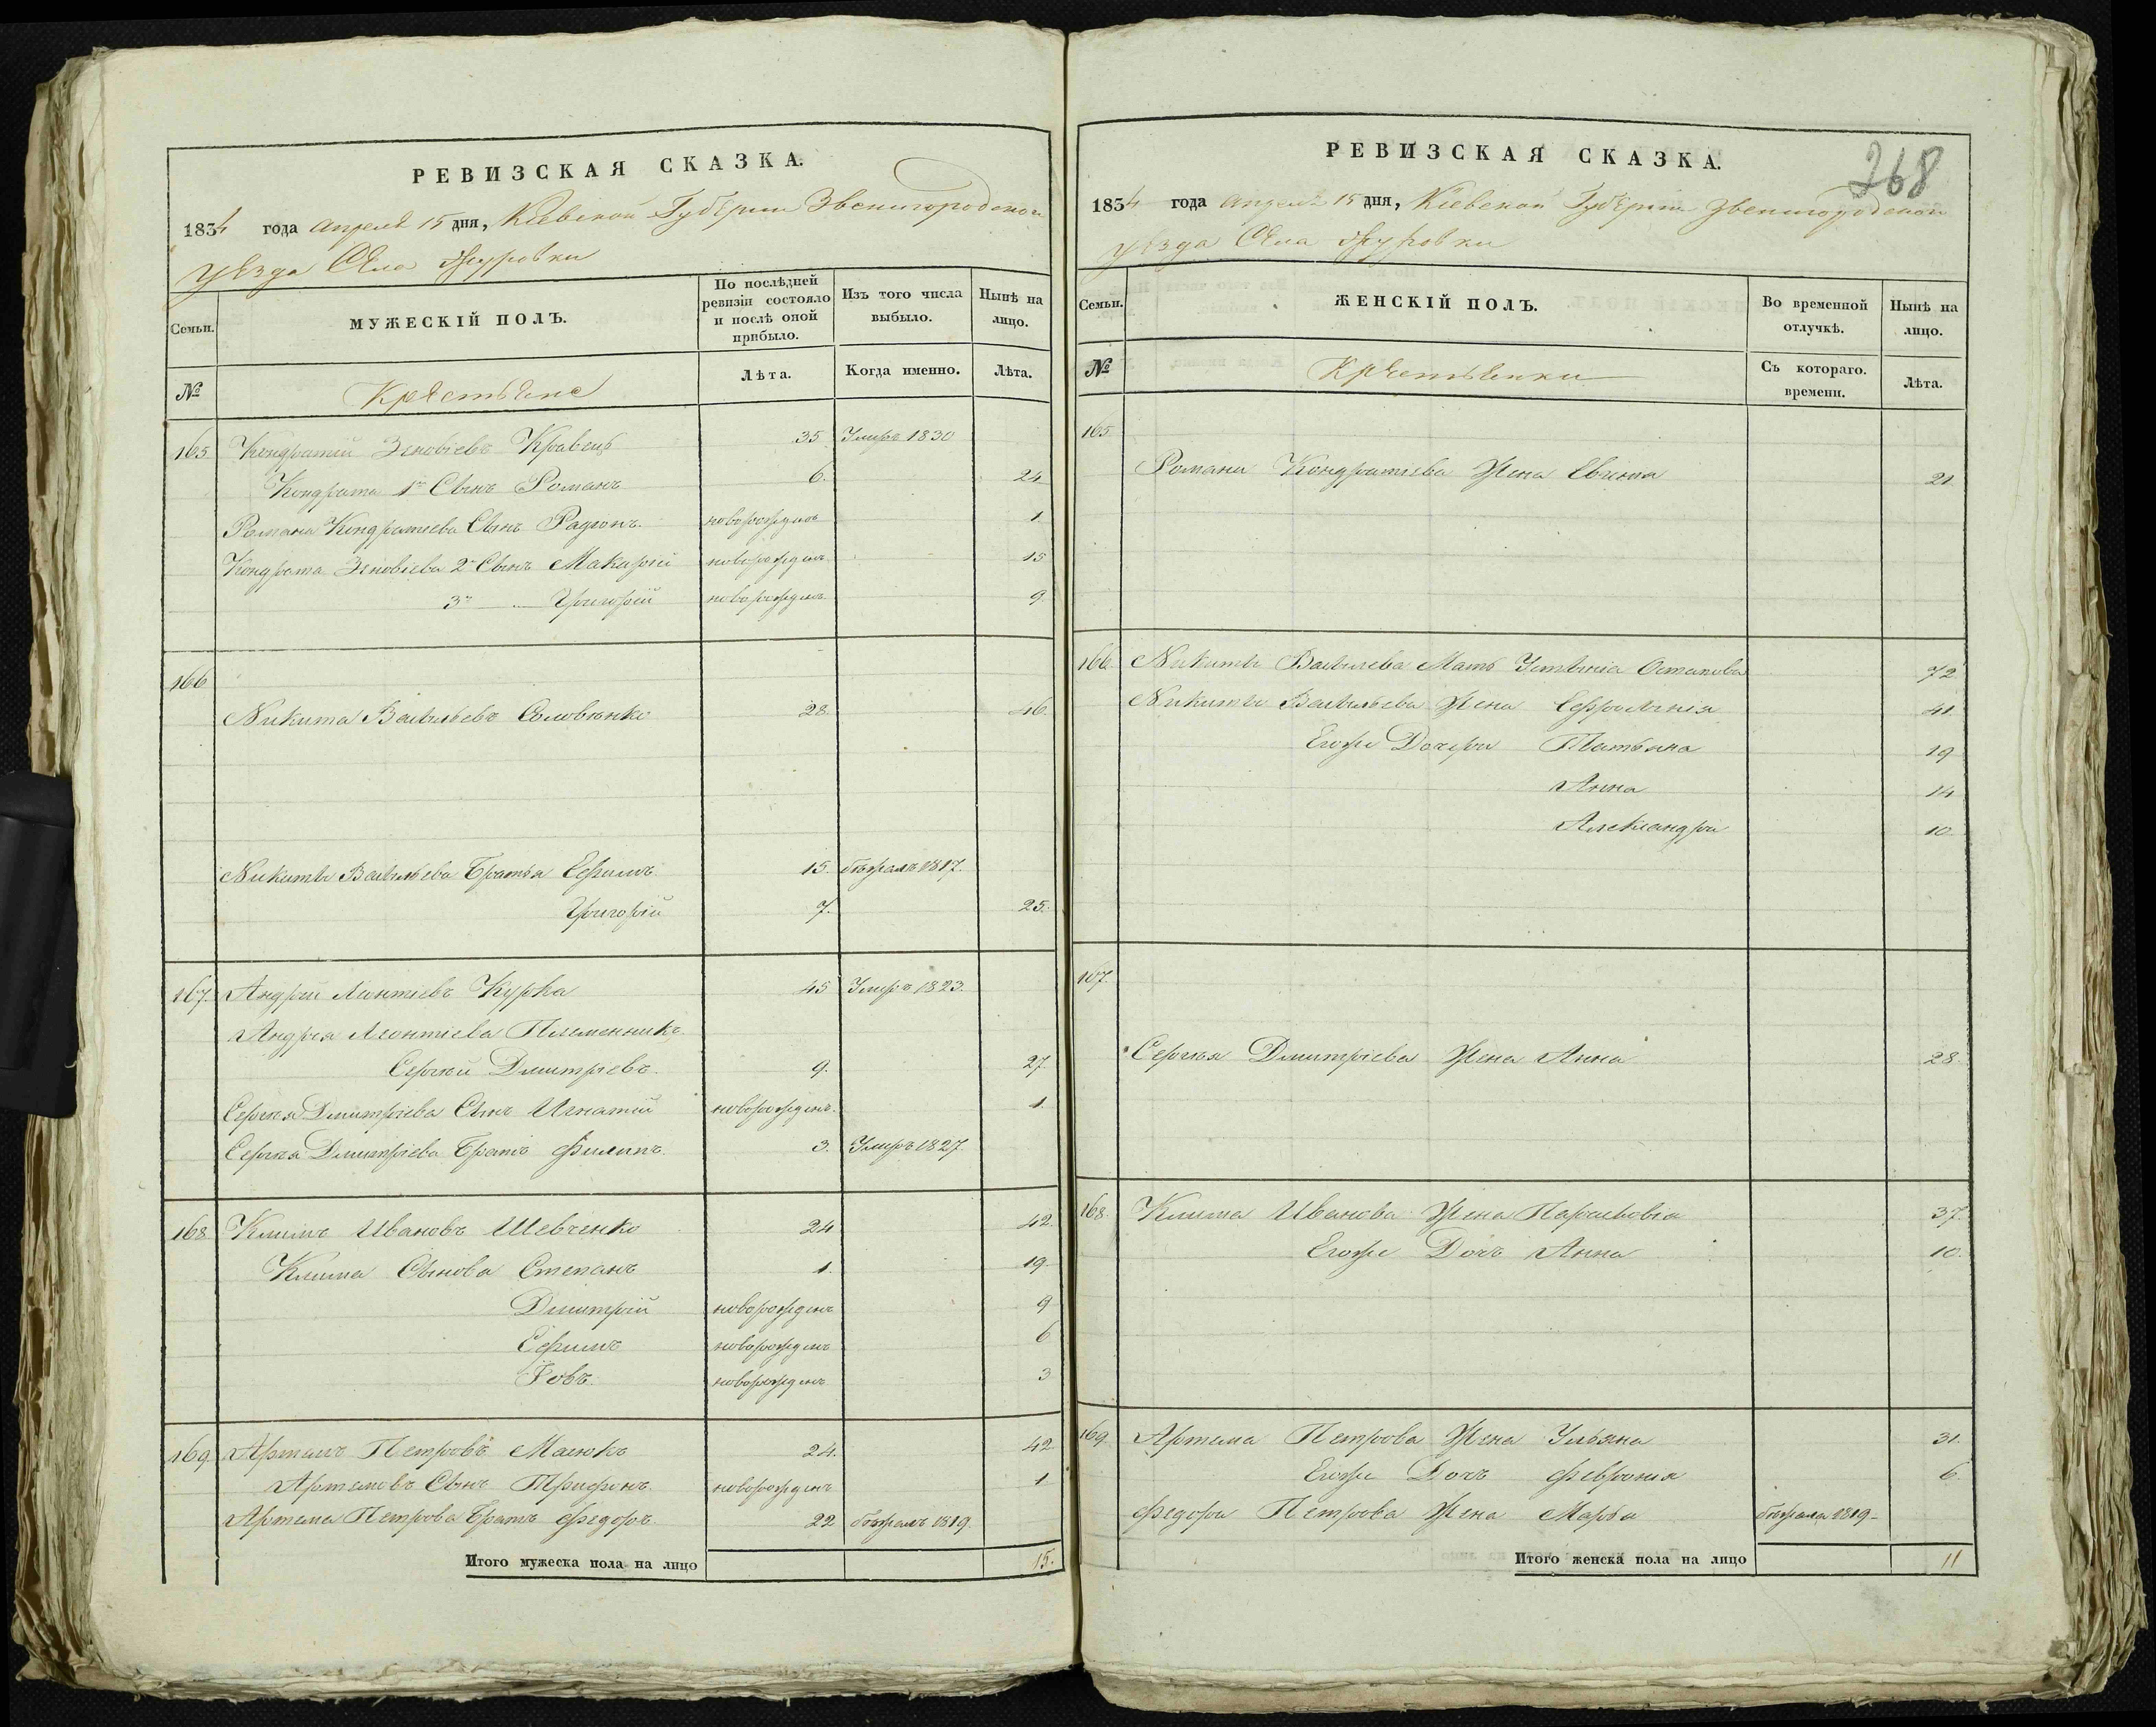 РЕВИЗСКАЯ СКАЗКА.
1834 года Апреля 15 дня, Кіевской Губерніи Звенигородского
уѣзда Села Журовки
Семьи.
МУЖЕСКІЙ ПОЛЪ.
По послѣдней ревизіи состояло и послѣ оной прибыло.
Изъ того числа выбыло.
Нынѣ на лицо.
№
Крестьяне
Лѣта.
Когда именно.
Лѣта.
165 Кондратій Зѣновіевъ Кравець 35 Умеръ 1830
Кондрата 1й Сынъ Романъ 6. 24.
Романа Кондратіева Сынъ Радіонъ новорожденъ 1.
Кондрата Зѣновіева 2й Сынъ Макарій новорожденъ 15
3й Григорій новорожденъ 9.
166
Никита Васильевъ Соловѣнко 28. 46.
Никиты Васильева Братья Ефимъ 15. бѣжалъ 1817.
Григорій 7. 25.
167. Андрей Леонтіевъ Курка 45 Умеръ 1823.
Андрея Леонтіева Племенникъ
Сергѣй Дмитріевъ 9. 27.
Сергѣя Дмитріева Сынъ Игнатій новорожденъ. 1.
Сергѣя Дмитріева Братъ Филипъ 3. Умеръ 1827.
168 Климъ Ивановъ Шевченко 24 42.
Клима Сынова Степанъ 1. 19.
Дмитрій новорожденъ 9
Ефимъ новорожденъ 6
Іовъ новорожденъ 3
169 Артемъ Петровъ 24. 42
Артемовъ Сынъ Трифонъ новорожденъ 1.
Артема Петрова Братъ Федоръ 22 бѣжалъ 1819.
Итого мужеска пола на лицо 15.
268
РЕВИЗСКАЯ СКАЗКА.
1834 года Апреля 15 дня, Кіевской Губерніи Звенигородского
уѣзда Села Журовки
Семьи.
ЖЕНСКІЙ ПОЛЪ.
Во временной отлучкѣ.
Нынѣ на лицо.
№
Крестьянки
Съ котораго времени.
Лѣта.
165
Романа Кондратіева Жена 21
166. Никиты Васильева Мать Устинія Остапова 72
Никиты Васильева Жена Ефросинія 41.
Егоже Дочери Татьяна 19
Анна 14
Александра 10.
167.
Сергѣя Дмитріева Жена Анна 28.
168. Клима Иванова Жена Парасковія 37.
Егоже Дочь Анна 10.
169 Артема Петрова Жена Ульяна 31.
Егоже Дочь Февронія 6.
Федора Петрова Жена Марья бѣжала 1819
Итого женска пола на лицо 11